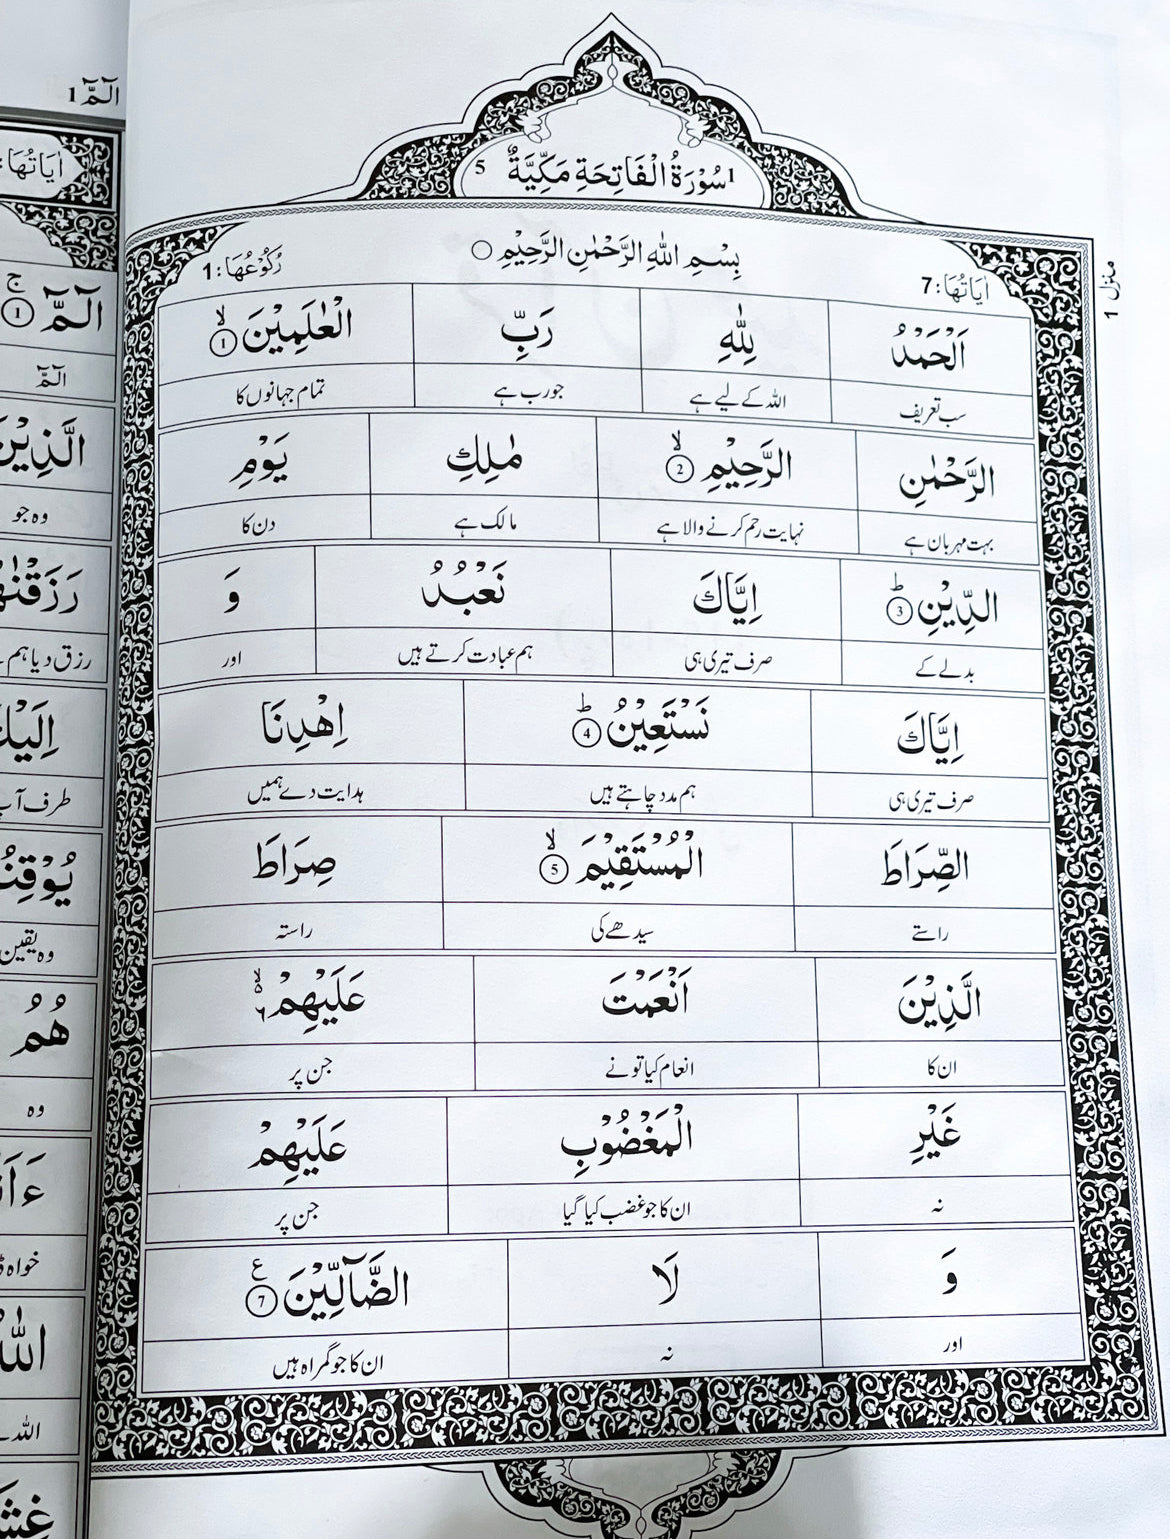 1 سُوْرَةُ الْفَاتِحَةِ مَكِّيَّةٌ 5
منزل 1
اٰيَاتُهَا: 7 بِسْمِ اللهِ الرَّحْمٰنِ الرَّحِيْمِ ○ رُكُوْعُهَا: 1
اَلْحَمْدُ لِلّٰهِ رَبِّ الْعٰلَمِيْنَ ۙ 1
سب تعریف اللہ کے لیے ہے جو رب ہے تمام جہانوں کا
الرَّحْمٰنِ الرَّحِيْمِ ۙ 2 مٰلِكِ يَوْمِ
بہت مہربان ہے نہایت رحم کرنے والا ہے مالک ہے دن کا
الدِّيْنِ ؕ 3 اِيَّاكَ نَعْبُدُ وَ
بدلے کے صرف تیری ہی ہم عبادت کرتے ہیں اور
اِيَّاكَ نَسْتَعِيْنُ ؕ 4 اِهْدِنَا
صرف تیری ہی ہم مدد چاہتے ہیں ہدایت دے ہمیں
الصِّرَاطَ الْمُسْتَقِيْمَ ۙ 5 صِرَاطَ
راستے سیدھے کی راستہ
الَّذِيْنَ اَنْعَمْتَ عَلَيْهِمْ ۙ ۵ ۶
ان کا انعام کیا تو نے جن پر
غَيْرِ الْمَغْضُوْبِ عَلَيْهِمْ
نہ ان کا جو غضب کیا گیا جن پر
وَ لَا الضَّآلِّيْنَ ع 7
اور نہ ان کا جو گمراہ ہیں
الٓمّٓ 1
اٰيَاتُهَا:
الٓمّٓ ج 1
الٓمّٓ
وہ جو
رزق دیا ہم
هُمُ
وہ